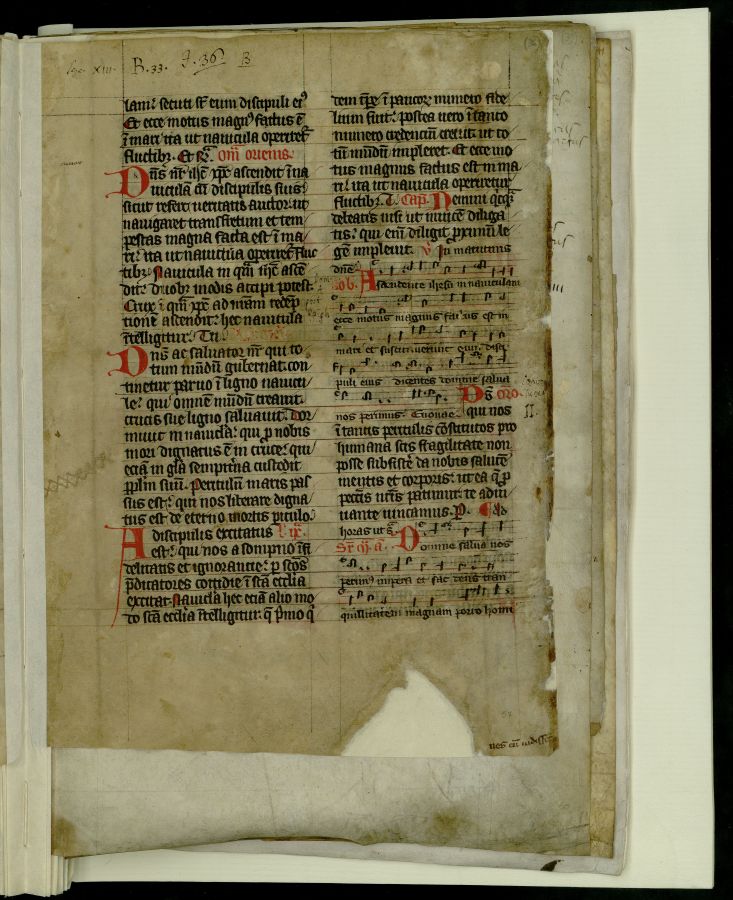 B.33. J.36. B
lam: secuti st̄ eum discipuli ei9
Et ecce motus magn9 factus ē
ī mari ita ut nauicula operiret᷑
fluctibꝫ. Et R. Om̄ orienis.
Dn̄s nr̄ ih̄c xp̄c ascendit ī na
uiculam cū discipulis suis
sicut refert ueritatis auctor: ut
nauigaret transfretum et tem
pestas magna facta est ī ma
ri: ita ut nauicula operiret᷑ fluc
tibꝫ Nauicula in quā ih̄c ascē
dit: duobꝫ modis accipi potest.
Crux ī quā xp̄c ad nr̄am redēp
tionē ascendit: hec nauicula
īntelligitur. Tu
Dn̄s ac saluator nr̄ qui to
tum mūdū gubernat: con
tinetur paruo ī ligno nauicu
le: qui omnē mūdū creauit.
crucis sue ligno saluauit. Dor
miuit in nauicla: qui p nobis
mori dignatus ē in cruce: qui
eciā in gl̄a sempit̄na custodit
pp̄lm suū. Periculū maris pas
sus est: qui nos liberare digna
tus est de et̄ne mortis piculo.
A discipulis excitatus
est: qui nos a sompno īfi
delitatis et ignorantie: p sc̄os
p̄dicatores cottidie ī sc̄a ecclia
excitat. Nauicla hec eciā alio mo
do sc̄a ecclia īntelligitur. q̄ p̄mo q
dem īp̄e ī paucoꝝ numero fide
lium fuit: postea uero ī tanto
numero credenciū creuit: ut to
tū mūdū impleret. Et ecce mo
tus magnus factus est in ma
ri: ita ut nauicula operiretur
fluctibꝫ. T. Cap. Nemini qcq̄
debeatis nisi ut inuicē diliga
tis: qui enī diligit proximū le
gē impleuit. V In matutinis
dn̄e. ob. Ascendente ihesu in nauiculam
ecce motus magnus factus est in
mari et suscitauerunt eum disci
puli eius dicentes domine salua
nos perimus. Euouae. Ds qui nos
ī tantis periculis cōstitutos pro
humana scis fragilitate non
posse subsistē: da nobis salutē
mentis et corporis: ut ea q̄ p
pecc̄is nr̄is patimur: te adiu
uante uincamus. P. Ad
horas ut s. Domine salua nos
perim9 impera et fac deus tran
quillitatem magnam porro homi
nes